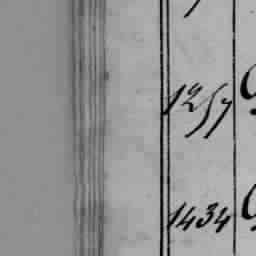 1257
1434